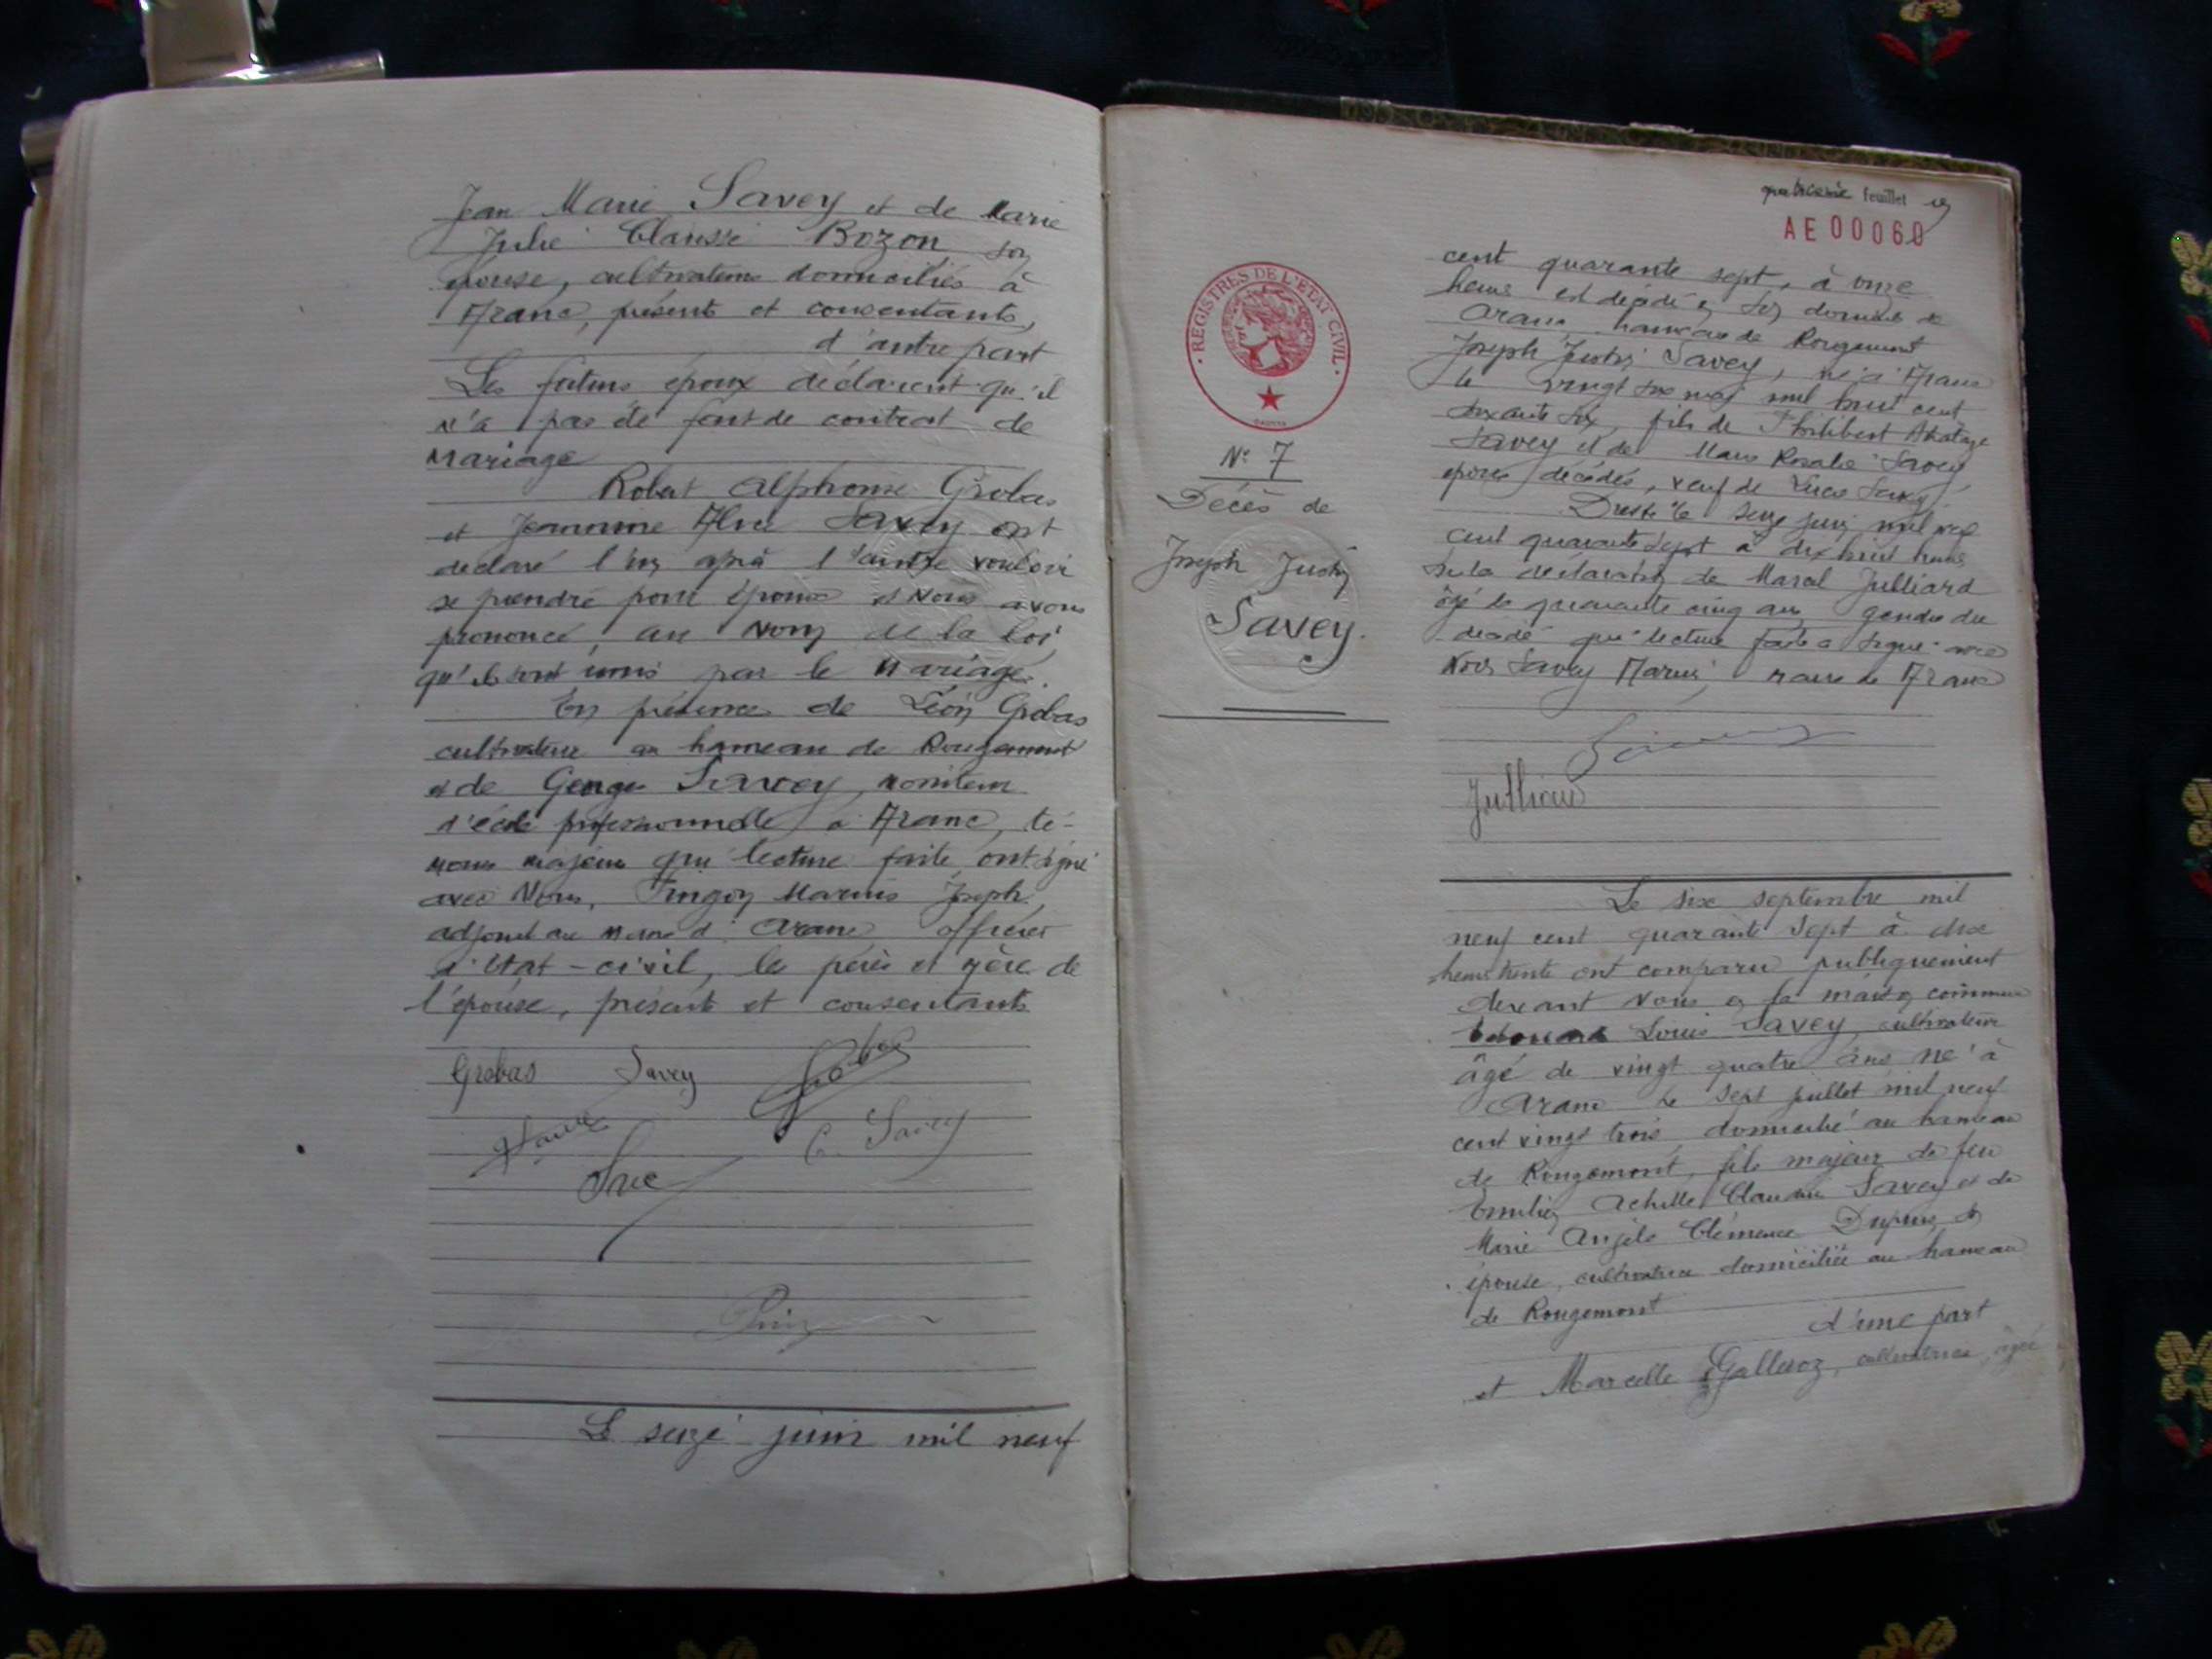 Jean Marie Savey et de Marie
Julie Clarisse Bozon, son
épouse, cultivateurs domiciliés à
Aranc, présents et consentants,
d'autre part
Les futurs époux déclarent qu'il
n'a pas été fait de contrat de
mariage
Robert Alphonse Grobas
et Jeannine Alice Savey ont
déclaré l'un après l'autre vouloir
se prendre pour époux et Nous avons
prononcé, au nom de la loi,
qu'ils sont unis par le mariage.
En présence de Léon Grobas
cultivateur au hameau de Rougemont
et de Georges Savey, moniteur
d'école professionnelle à Aranc, té-
moins majeurs qui lecture faite, ont signé
avec Nous, Marius Joseph,
adjoint au maire d'Aranc officier
d'Etat-civil, les pères et mère de
l'épouse, présents et consentants
Grobas Savey Grobas
C. Savey
Le seize juin mil neuf
quatrième feuillet
AE 00060
REGISTRES DE L'ETAT CIVIL
cent quarante sept, à onze
heures est décédé en son domicile de
Aranc hameau de Rougemont
Joseph Justin Savey, né à Aranc
le vingt six mai mil huit cent
soixante six, fils de Philibert
Savey et de Marie Rosalie Savey,
époux décédés, veuf de Savey.
Dressé le seize juin mil neuf
cent quarante sept à dix huit heures
sur la déclaration de Marcel Julliard
âgé de quarante cinq ans, gendre du
décédé qui lecture faite a signé avec
Nous Savey Marius, maire de Aranc
N° 7
Décès de
Joseph Justin
Savey.
Julliard
Le six septembre mil
neuf cent quarante sept à dix
heures trente ont comparu publiquement
devant Nous en la maison commune
Edouard Louis Savey, cultivateur
âgé de vingt quatre ans né à
Aranc le sept juillet mil neuf
cent vingt trois domicilié au hameau
de Rougemont, fils majeur de feu
Emilien Achille Claudius Savey et de
Marie Angèle Clémence Dupuis, son
épouse, cultivatrice domiciliée au hameau
de Rougemont
d'une part
et Marcelle cultivatrice, âgée